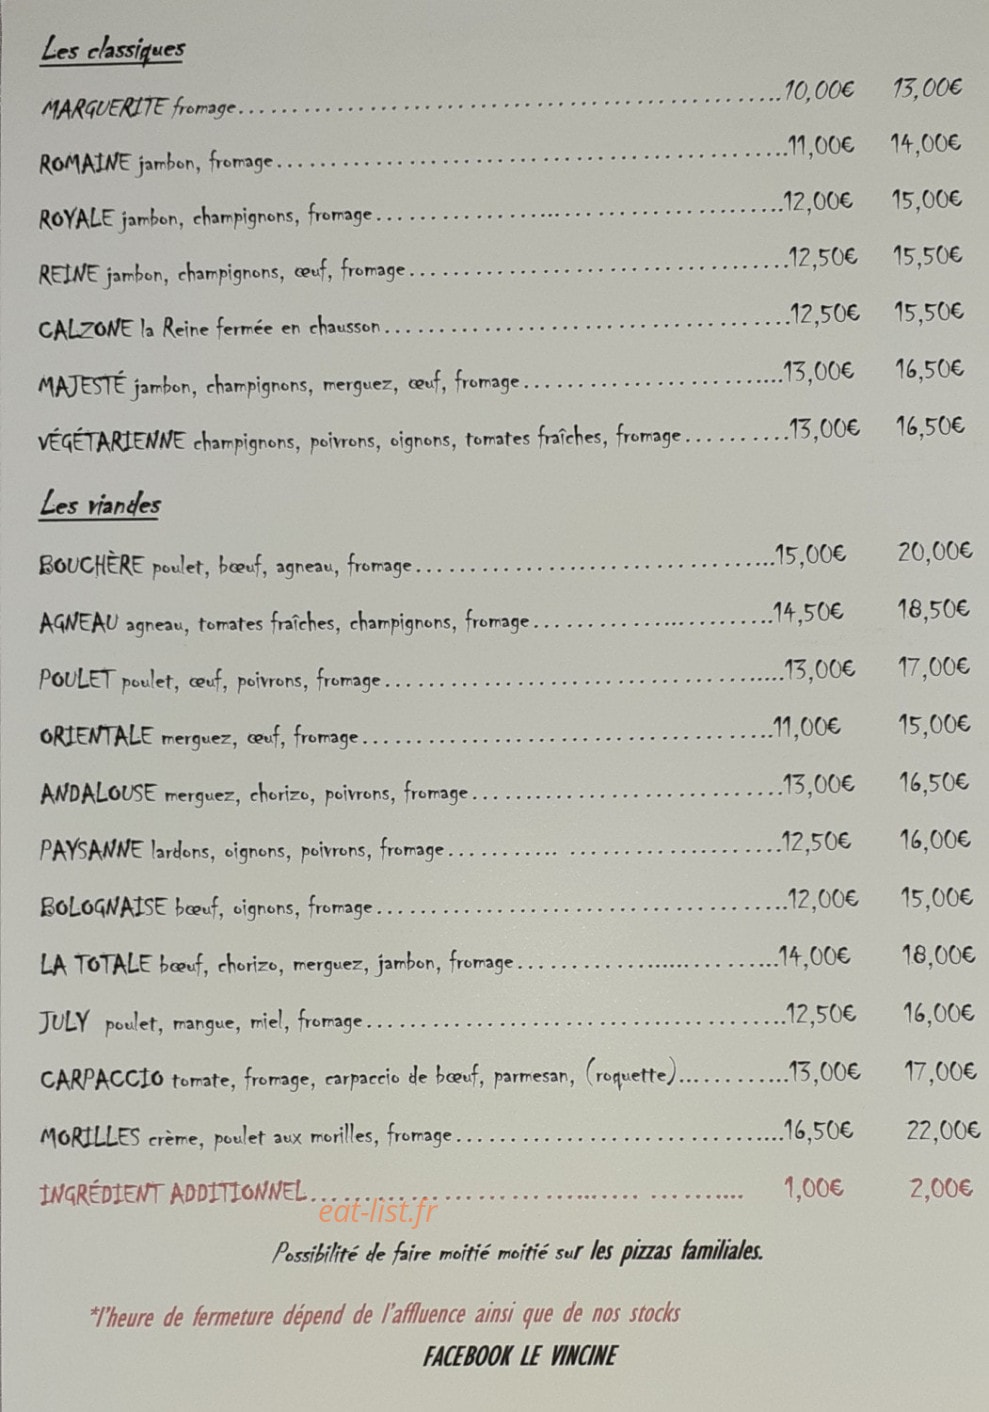 Les classiques
MARGUERITE fromage.....................................................10,00€ 13,00€
ROMAINE jambon, fromage.....................................................11,00€ 14,00€
ROYALE jambon, champignons, fromage..........................................12,00€ 15,00€
REINE jambon, champignons, œuf, fromage......................................12,50€ 15,50€
CALZONE la Reine fermée en chausson........................................12,50€ 15,50€
MAJESTÉ jambon, champignons, merguez, œuf, fromage..........................13,00€ 16,50€
VÉGÉTARIENNE champignons, poivrons, oignons, tomates fraîches, fromage..........13,00€ 16,50€
Les viandes
BOUCHÈRE poulet, bœuf, agneau, fromage.....................................15,00€ 20,00€
AGNEAU agneau, tomates fraîches, champignons, fromage.........................14,50€ 18,50€
POULET poulet, œuf, poivrons, fromage.......................................13,00€ 17,00€
ORIENTALE merguez, œuf, fromage..........................................11,00€ 15,00€
ANDALOUSE merguez, chorizo, poivrons, fromage...............................13,00€ 16,50€
PAYSANNE lardons, oignons, poivrons, fromage.......... .....................12,50€ 16,00€
BOLOGNAISE bœuf, oignons, fromage..........................................12,00€ 15,00€
LA TOTALE bœuf, chorizo, merguez, jambon, fromage...........................14,00€ 18,00€
JULY poulet, mangue, miel, fromage..........................................12,50€ 16,00€
CARPACCIO tomate, fromage, carpaccio de bœuf, parmesan, (roquette)............13,00€ 17,00€
MORILLES crème, poulet aux morilles, fromage.................................16,50€ 22,00€
INGRÉDIENT ADDITIONNEL................................ ......... 1,00€ 2,00€
eat-list.fr
Possibilité de faire moitié moitié sur les pizzas familiales.
*l'heure de fermeture dépend de l'affluence ainsi que de nos stocks
FACEBOOK LE VINCINE